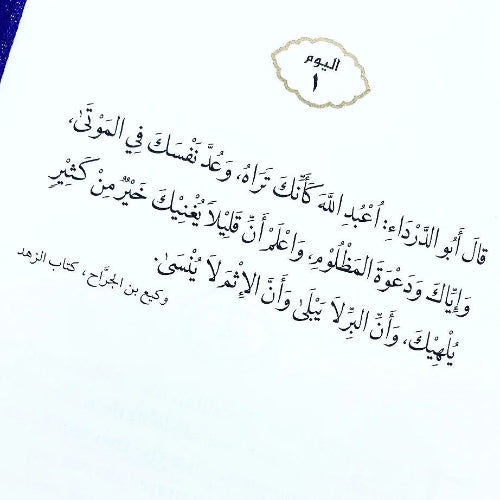 اليوم
١
قالَ أَبُو الدَّرْدَاءِ: اُعْبُدِ اللَّهَ كَأَنَّكَ تَرَاهُ، وَعُدَّ نَفْسَكَ فِي المَوْتَىٰ،
وَإِيَّاكَ وَدَعْوَةَ المَظْلُوْمِ، وَاعْلَمْ أَنَّ قَلِيْلاً يُغْنِيْكَ خَيْرٌ مِنْ كَثِيْرٍ
يُلْهِيْكَ، وَأَنَّ البِرَّ لاَ يَبْلَىٰ وَأَنَّ الإِثْمَ لاَ يُنْسَىٰ.
وكيع بن الجَرَّاح، كتاب الزهد